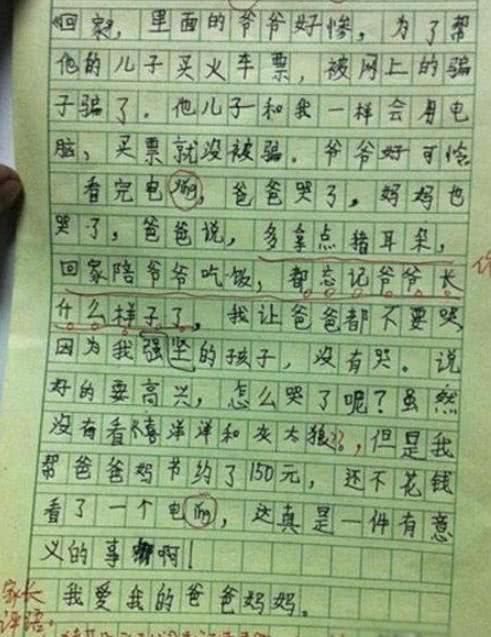 《回家》，里面的爷爷好惨，为了帮
他的儿子买火车票，被网上的骗
子骗了。他儿子和我一样会用电
脑，买票就没被骗。爷爷好可怜
看完电ying，爸爸哭了，妈妈也
哭了，爸爸说，多拿点猪耳朵，
回家陪爷爷吃饭，都忘记爷爷长
什么样子了，我让爸爸都不要哭，
因为我强坚的孩子，没有哭。说
好的要高兴，怎么哭了呢？虽然
没有看喜洋洋和灰太狼，但是我
帮爸爸妈节约了150元，还不花钱
看了一个电ying，这真是一件有意
义的事啊！
我爱我的爸爸妈妈。
家长
评语：